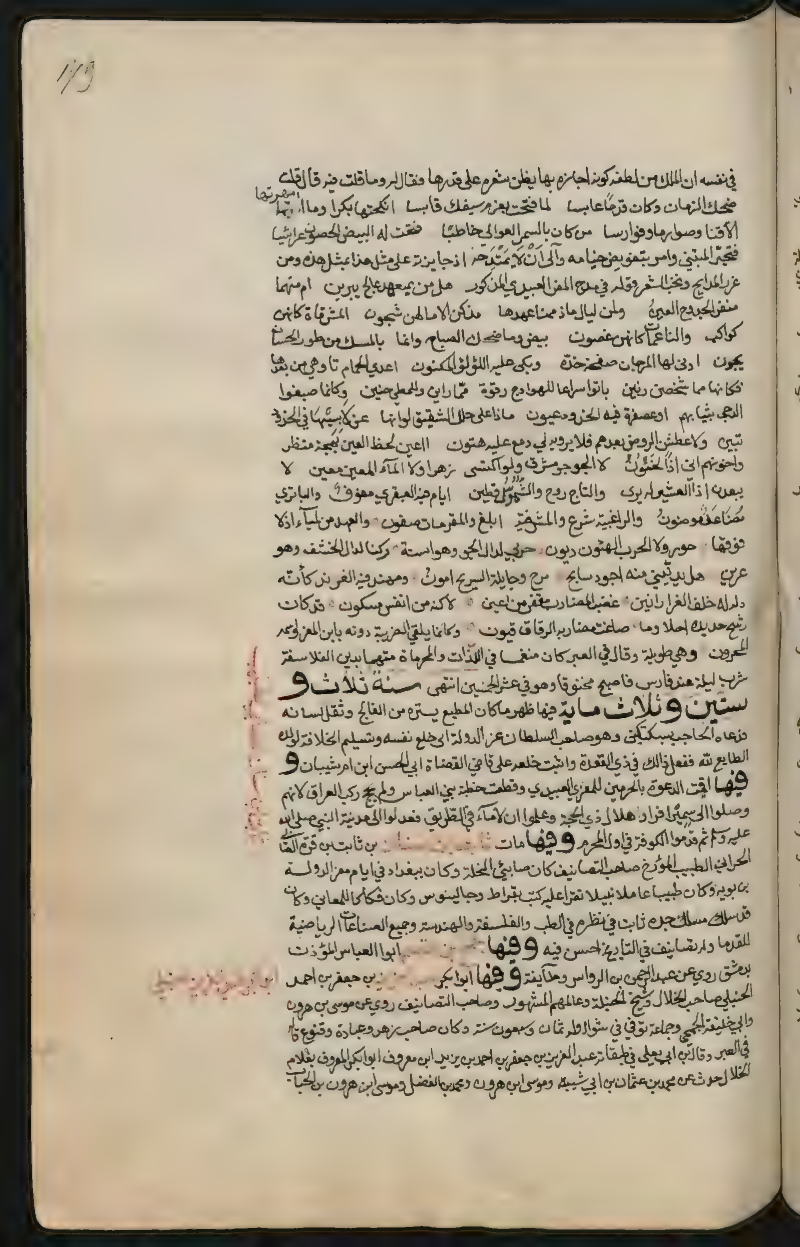 ١٧٩
في نفسه ان الملك من لطفه كونه اجازه بها يظن شعره على قدرها فقال له وما قلت فيه قال قلت
ضحك الزمان وكان قدما عابسا لما فتحت بعزم سيفك قابسا انكحتها بكرا وما امهرتها
الا قنا وصوارما وفوارسا من كان بالسمر العوالي خاطبا فتحت له البيض الحصون عرائسا
فتحير المتنبي وامر بتقويض خيامه وآلى أن لا يمتدحه اذ جايزته على مثل هذا بمثل هذه ومن
غرر المدايح ونخب الشعر قوله في مدح المعز العبيدي المذكور هل من بمعهد عالج يبرين ام منهما
منقر الحدوج العين ولمن ليال ما ذممنا عهدها مذ كن الا انهن شجون المشرقات كانهن
كواكب والناعمات كانهن غصون بيض وما ضحك الصباح وانما بالمسك من طرر الحسان
يجون ادمى لها المرجان صفحة خده وبكى عليه اللؤلؤ المكنون اعدى الحمام تاوهي من بعدها
فكانها مما شجعن رنين بانوا سراعا للهوادج زفرة مما راين وللمطي حنين وكانما صبغوا
الدجى بثيابهم او عصفرت فيه الخدود عيون ماذا على حلل الشقيق لو انها عن لابسيها في الخدود
تبين ولا عطش الروض بعدهم فلا يرويه لي دمع عليه هتون ااعين لحظ العين بهجة منظر
واخونهم اني اذا لخؤن لا الجو جو مشرق ولو اكتسى زهرا ولا المآء المعين معين لا
يبعدن اذ العبير له ثرى والتاج روح والشموس قطين ايام فيه العبقري مفوف والسابري
مضاعف موضون والزاغبية شرع والمشرفية لمع والمقربات صفون والعهد من لمياء اذ لا
قومها خزر ولا الحرب الهتون زبون حزني لذاك الجو وهو اسنة وكناس ذاك الخشف وهو
عرين هل يدنيني منه اجرد سابح مرح وجايلة النسوع امون ومهند فيه الفرند كأنه
وهي طويلة وقال في العبر كان منغمسا في اللذات والمحرمات متهما بدين الفلاسفة
شرب ليلة عند فارس فاصبح مخنوقا وهو في عشر الخمسين انتهى سنة ثلاث و
ستين وثلاث ماية فيها ظهر ما كان المطيع يستره من الفالج وثقل لسانه
فدعاه الحاجب سبكتكين وهو صاحب السلطان عز الدولة الى خلع نفسه وتسليم الخلافة لولده
الطايع لله ففعل ذالك في ذي القعدة واثبت خلعه على قاضي القضاة ابي الحسن ابن ام شيبان و
فيها اقيمت الدعوة بالحرمين للمعز العبيدي وقطعت خطبة بني العباس ولم يحج ركب العراق لانهم
وصلوا الى سميرا فراوا هلال ذي الحجة وعلموا ان لا مآء في الطريق فعدلوا الى مدينة النبي صلى الله
عليه وسلم ثم قدموا الكوفة في اول المحرم وفيها مات ثابت بن سنان بن ثابت بن قرة
الحراني الطبيب المؤرخ صاحب التصانيف كان صابئي النحلة وكان ببغداد في ايام معز الدولة
بن بويه وكان طبيبا عاملا نبيلا تقرا عليه كتب بقراط وجالينوس وكان فكاكا للمعاني وكان
قد سلك مسلك جده ثابت في نظره في الطب والفلسفة والهندسة وجميع الصناعات الرياضية
للقدما وله تصانيف في التاريخ احسن فيه وفيها ابوا العباس المؤذن
بدمشق روى عن عبد الرحمن بن الرواس وطايفة وفيها ابوا بكر بن جعفر بن احمد
الحنبلي صاحب الخلال وشيخ الحنبلة وعالمهم المشهور وصاحب التصانيف روى عن موسى بن هرون
وابي خليفة الجمحي وجماعة توفي في شوال وله ثمان وسبعون سنة وكان صاحب زهد وعبادة وقنوع قاله
في العبر وقال ابن ابي يعلى في طبقاته عبد العزيز بن جعفر بن احمد بن يزيد ابن معروف ابوا بكر المعروف بغلام
الخلال حدث عن محمد بن عثمان بن ابي شيبة وموسى ابن هرون ومحمد بن الفضل وموسى ابن هرون بن الحباب